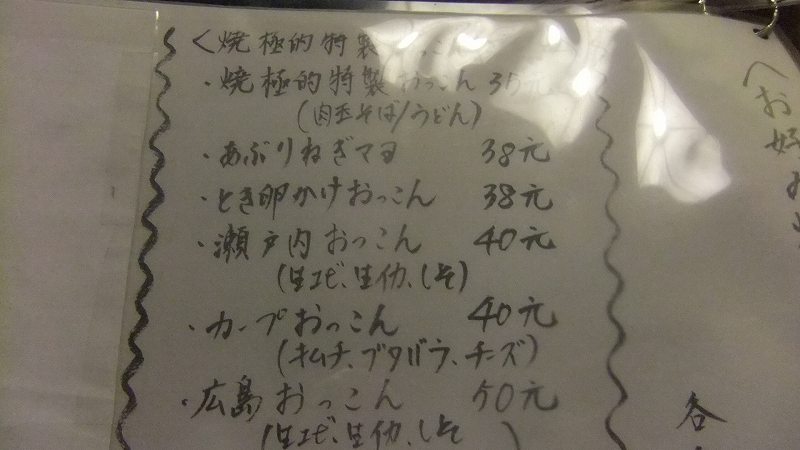 <焼極的特製おっこん
・焼極的特製おっこん 35元
(肉玉そば/うどん)
・あぶりねぎマヨ 38元
・とき卵かけおっこん 38元
・瀬戸内おっこん 40元
(生エビ、生イカ、しそ)
・カープおっこん 40元
(キムチ、ブタバラ、チーズ)
・広島おっこん 50元
(生エビ、生イカ、しそ )
<お好み
各